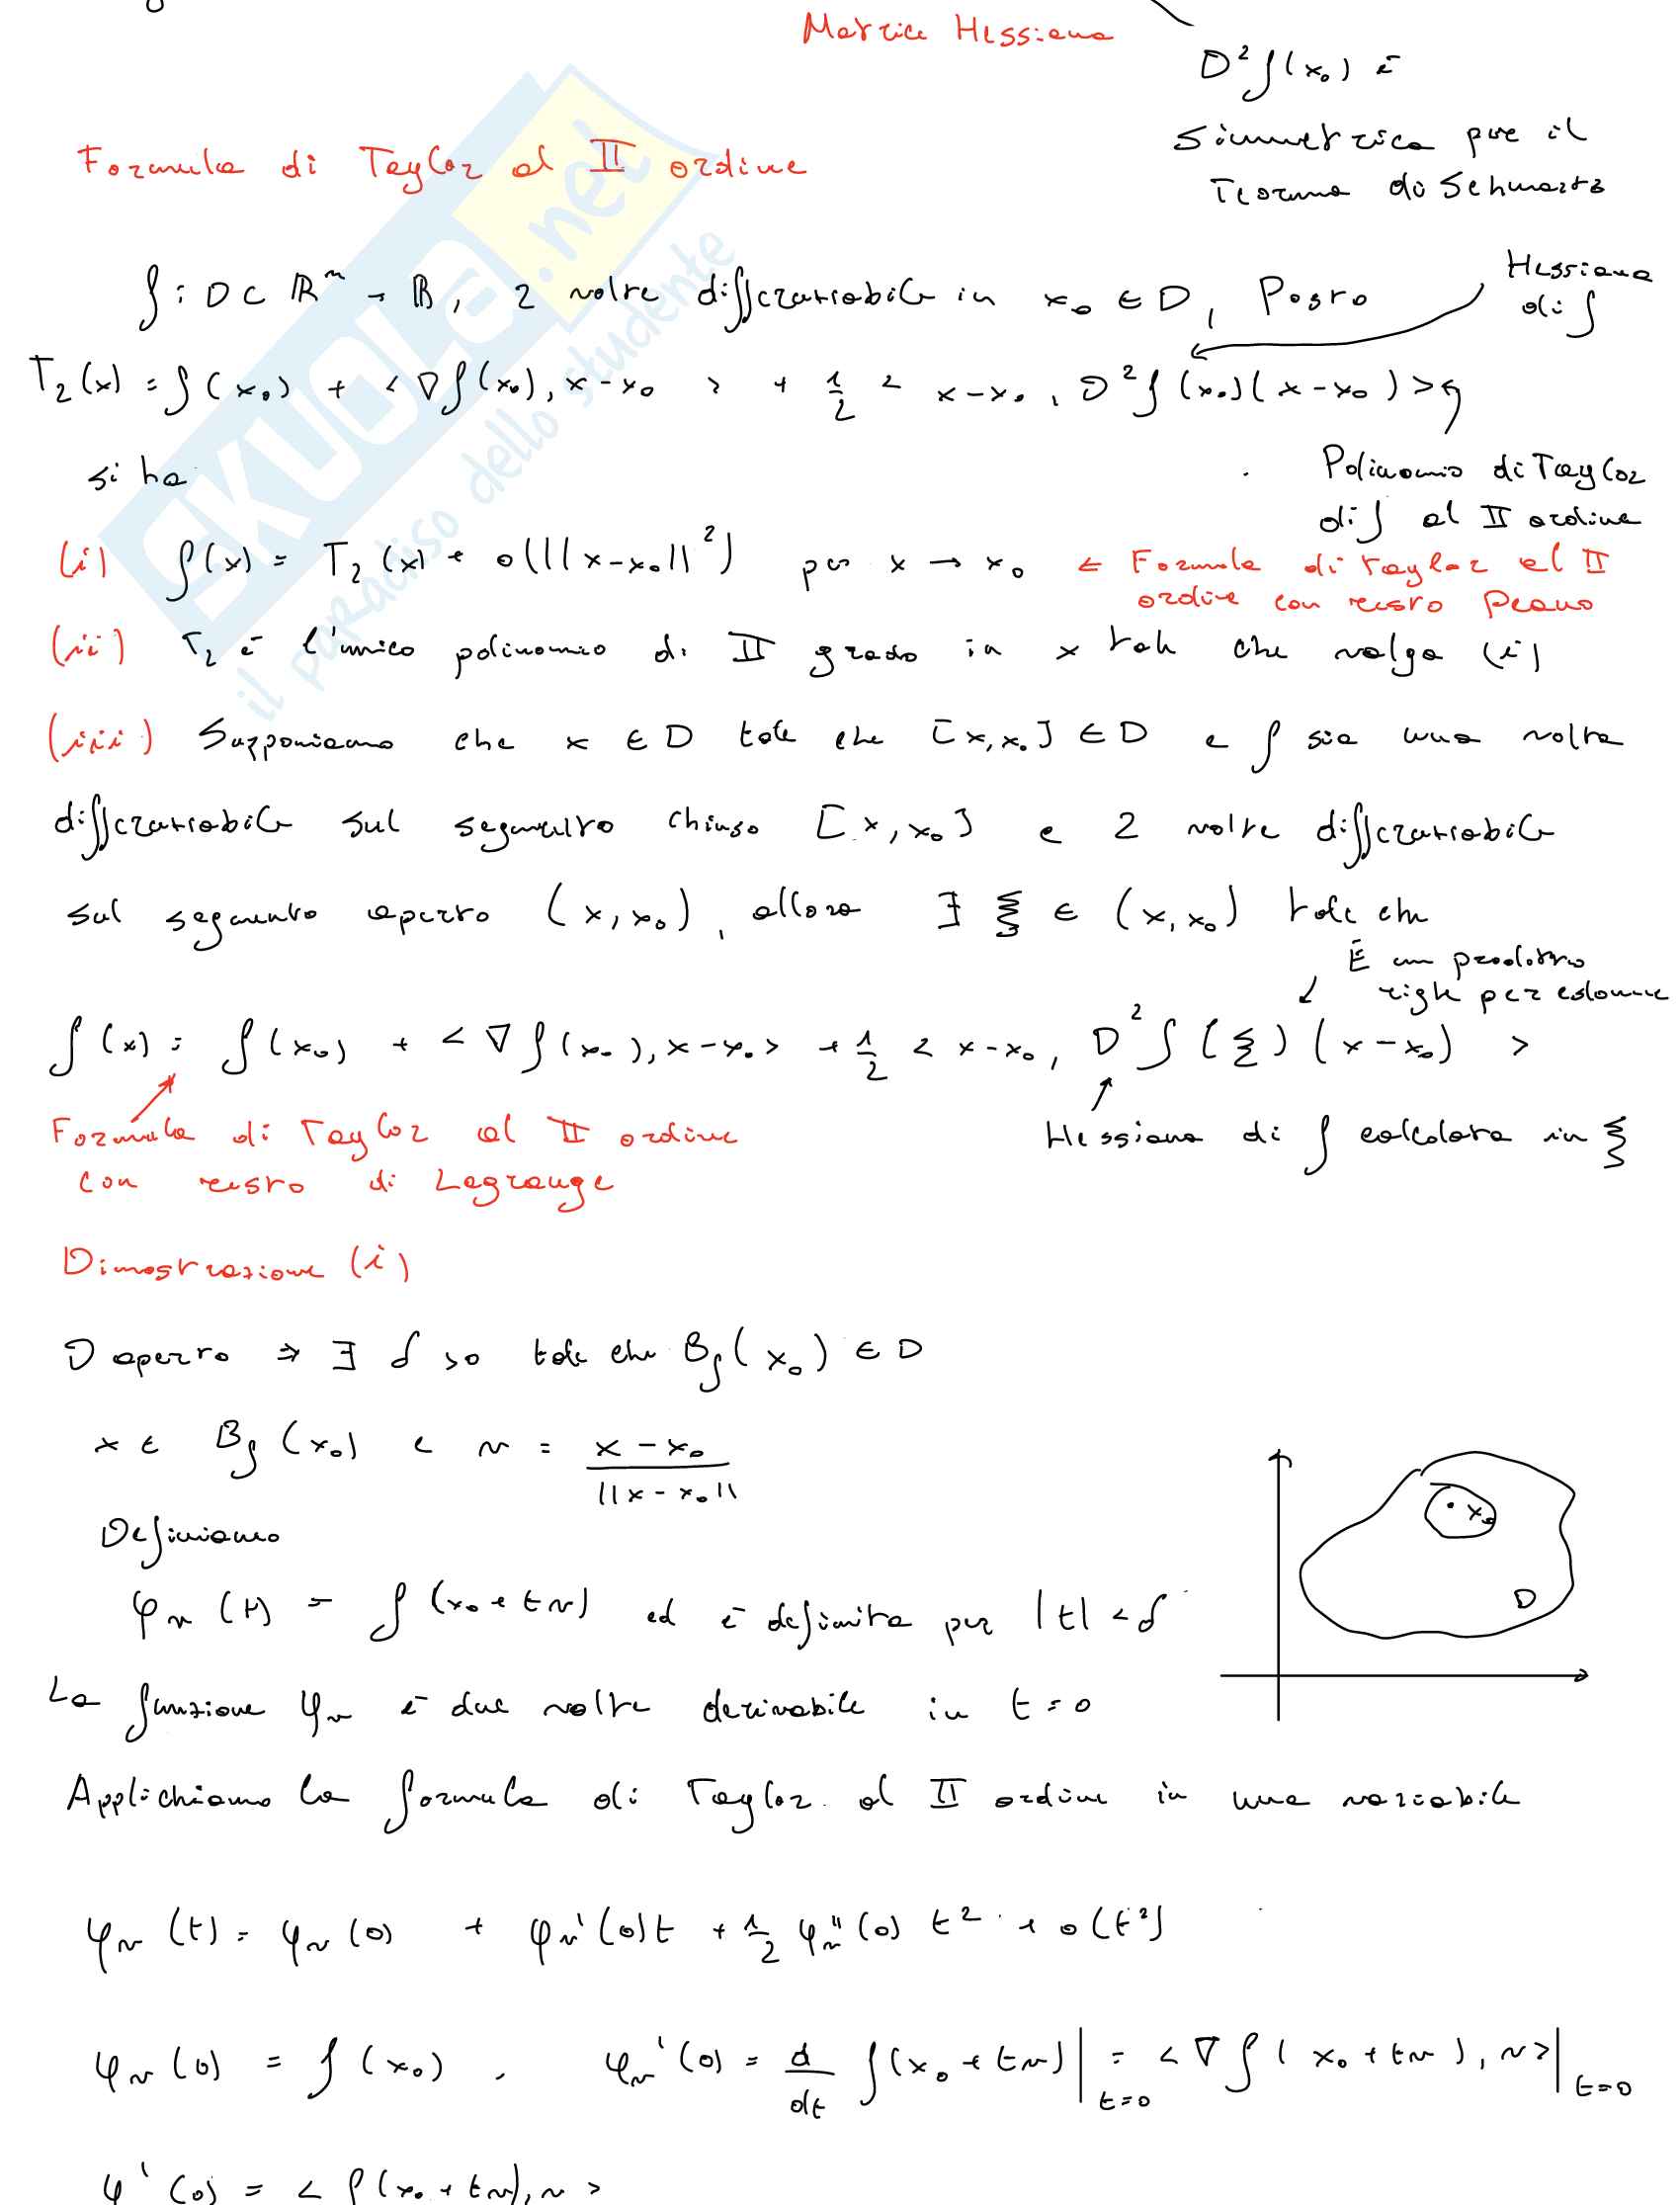 Matrice Hessiana
D²f(x₀) è
simmetrica per il
Teorema di Schwartz
Formula di Taylor al II ordine
f: D ⊂ ℝⁿ → ℝ, 2 volte differenziabile in x₀ ∈ D, Posto
Hessiana
di f
T₂(x) = f(x₀) + <∇f(x₀), x-x₀> + 1/2 <x-x₀, D²f(x₀)(x-x₀)>
si ha
Polinomio di Taylor
di f al II ordine
(i) f(x) = T₂(x) + o(||x-x₀||²) per x → x₀ ← Formula di Taylor al II
ordine con resto Peano
(ii) T₂ è l'unico polinomio di II grado in x tale che valga (i)
(iii) Supponiamo che x ∈ D tale che [x,x₀] ∈ D e f sia una volta
differenziabile sul segmento chiuso [x,x₀] e 2 volte differenziabile
sul segmento aperto (x,x₀), allora ∃ ξ ∈ (x,x₀) tale che
È un prodotto
righe per colonne
f(x) = f(x₀) + <∇f(x₀), x-x₀> + 1/2 <x-x₀, D²f(ξ)(x-x₀)>
Formula di Taylor al II ordine
con resto di Lagrange
Hessiana di f calcolata in ξ
Dimostrazione (i)
D aperto ⇒ ∃ δ > 0 tale che Bδ(x₀) ∈ D
x ∈ Bδ(x₀) e v = x-x₀ / ||x-x₀||
Definiamo
φᵥ(t) = f(x₀+tv) ed è definita per |t| < δ
x₀
D
La funzione φᵥ è due volte derivabile in t=0
Applichiamo la formula di Taylor al II ordine in una variabile
φᵥ(t) = φᵥ(0) + φᵥ'(0)t + 1/2 φᵥ''(0) t² + o(t²)
φᵥ(0) = f(x₀), φᵥ'(0) = d/dt f(x₀+tv)|t=0 = <∇f(x₀+tv), v>|t=0
φ'(0) = < f(x₀+tv), v >
SKUOLA.net
il paradiso dello studente